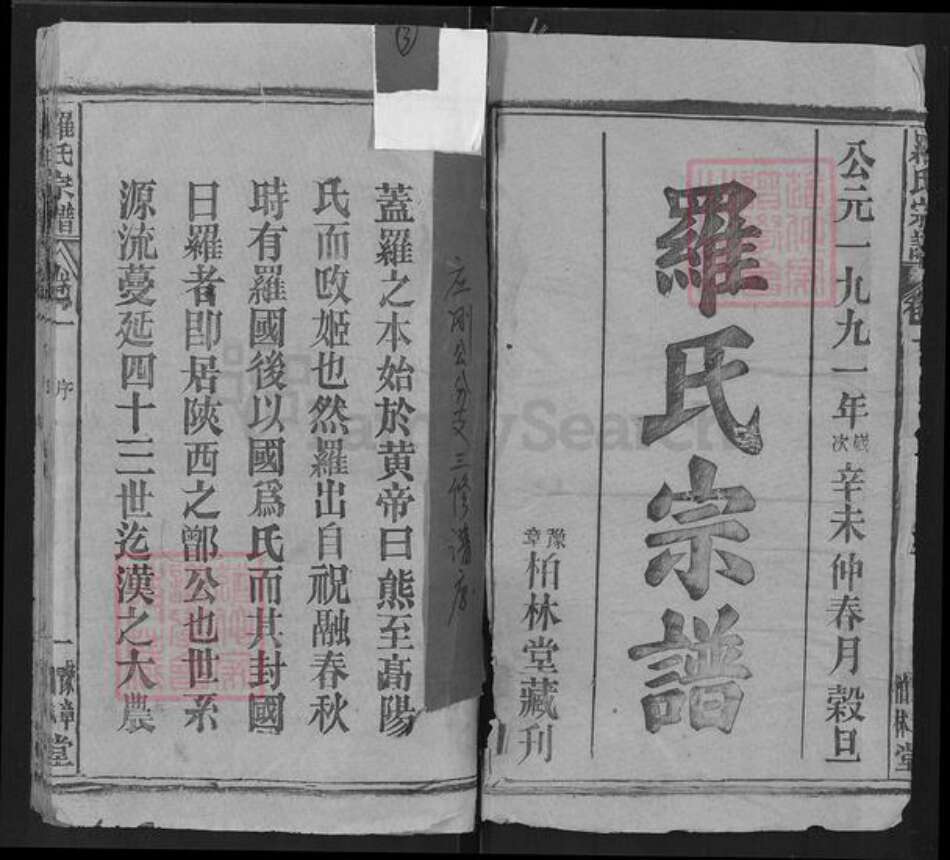 公元一九九一年歲次辛未仲春月穀旦
羅氏宗譜
豫章柏林堂藏刊
3
左剛公分支三修譜序
蓋羅之本始於黄帝曰熊至高陽
氏而改姬也然羅出自祝融春秋
時有羅國後以國爲氏而其封國
曰羅者卽居陝西之鄫公也世系
源流蔓延四十三世迄漢之大農
羅氏宗譜
序
一
豫章
堂
FamilySearch